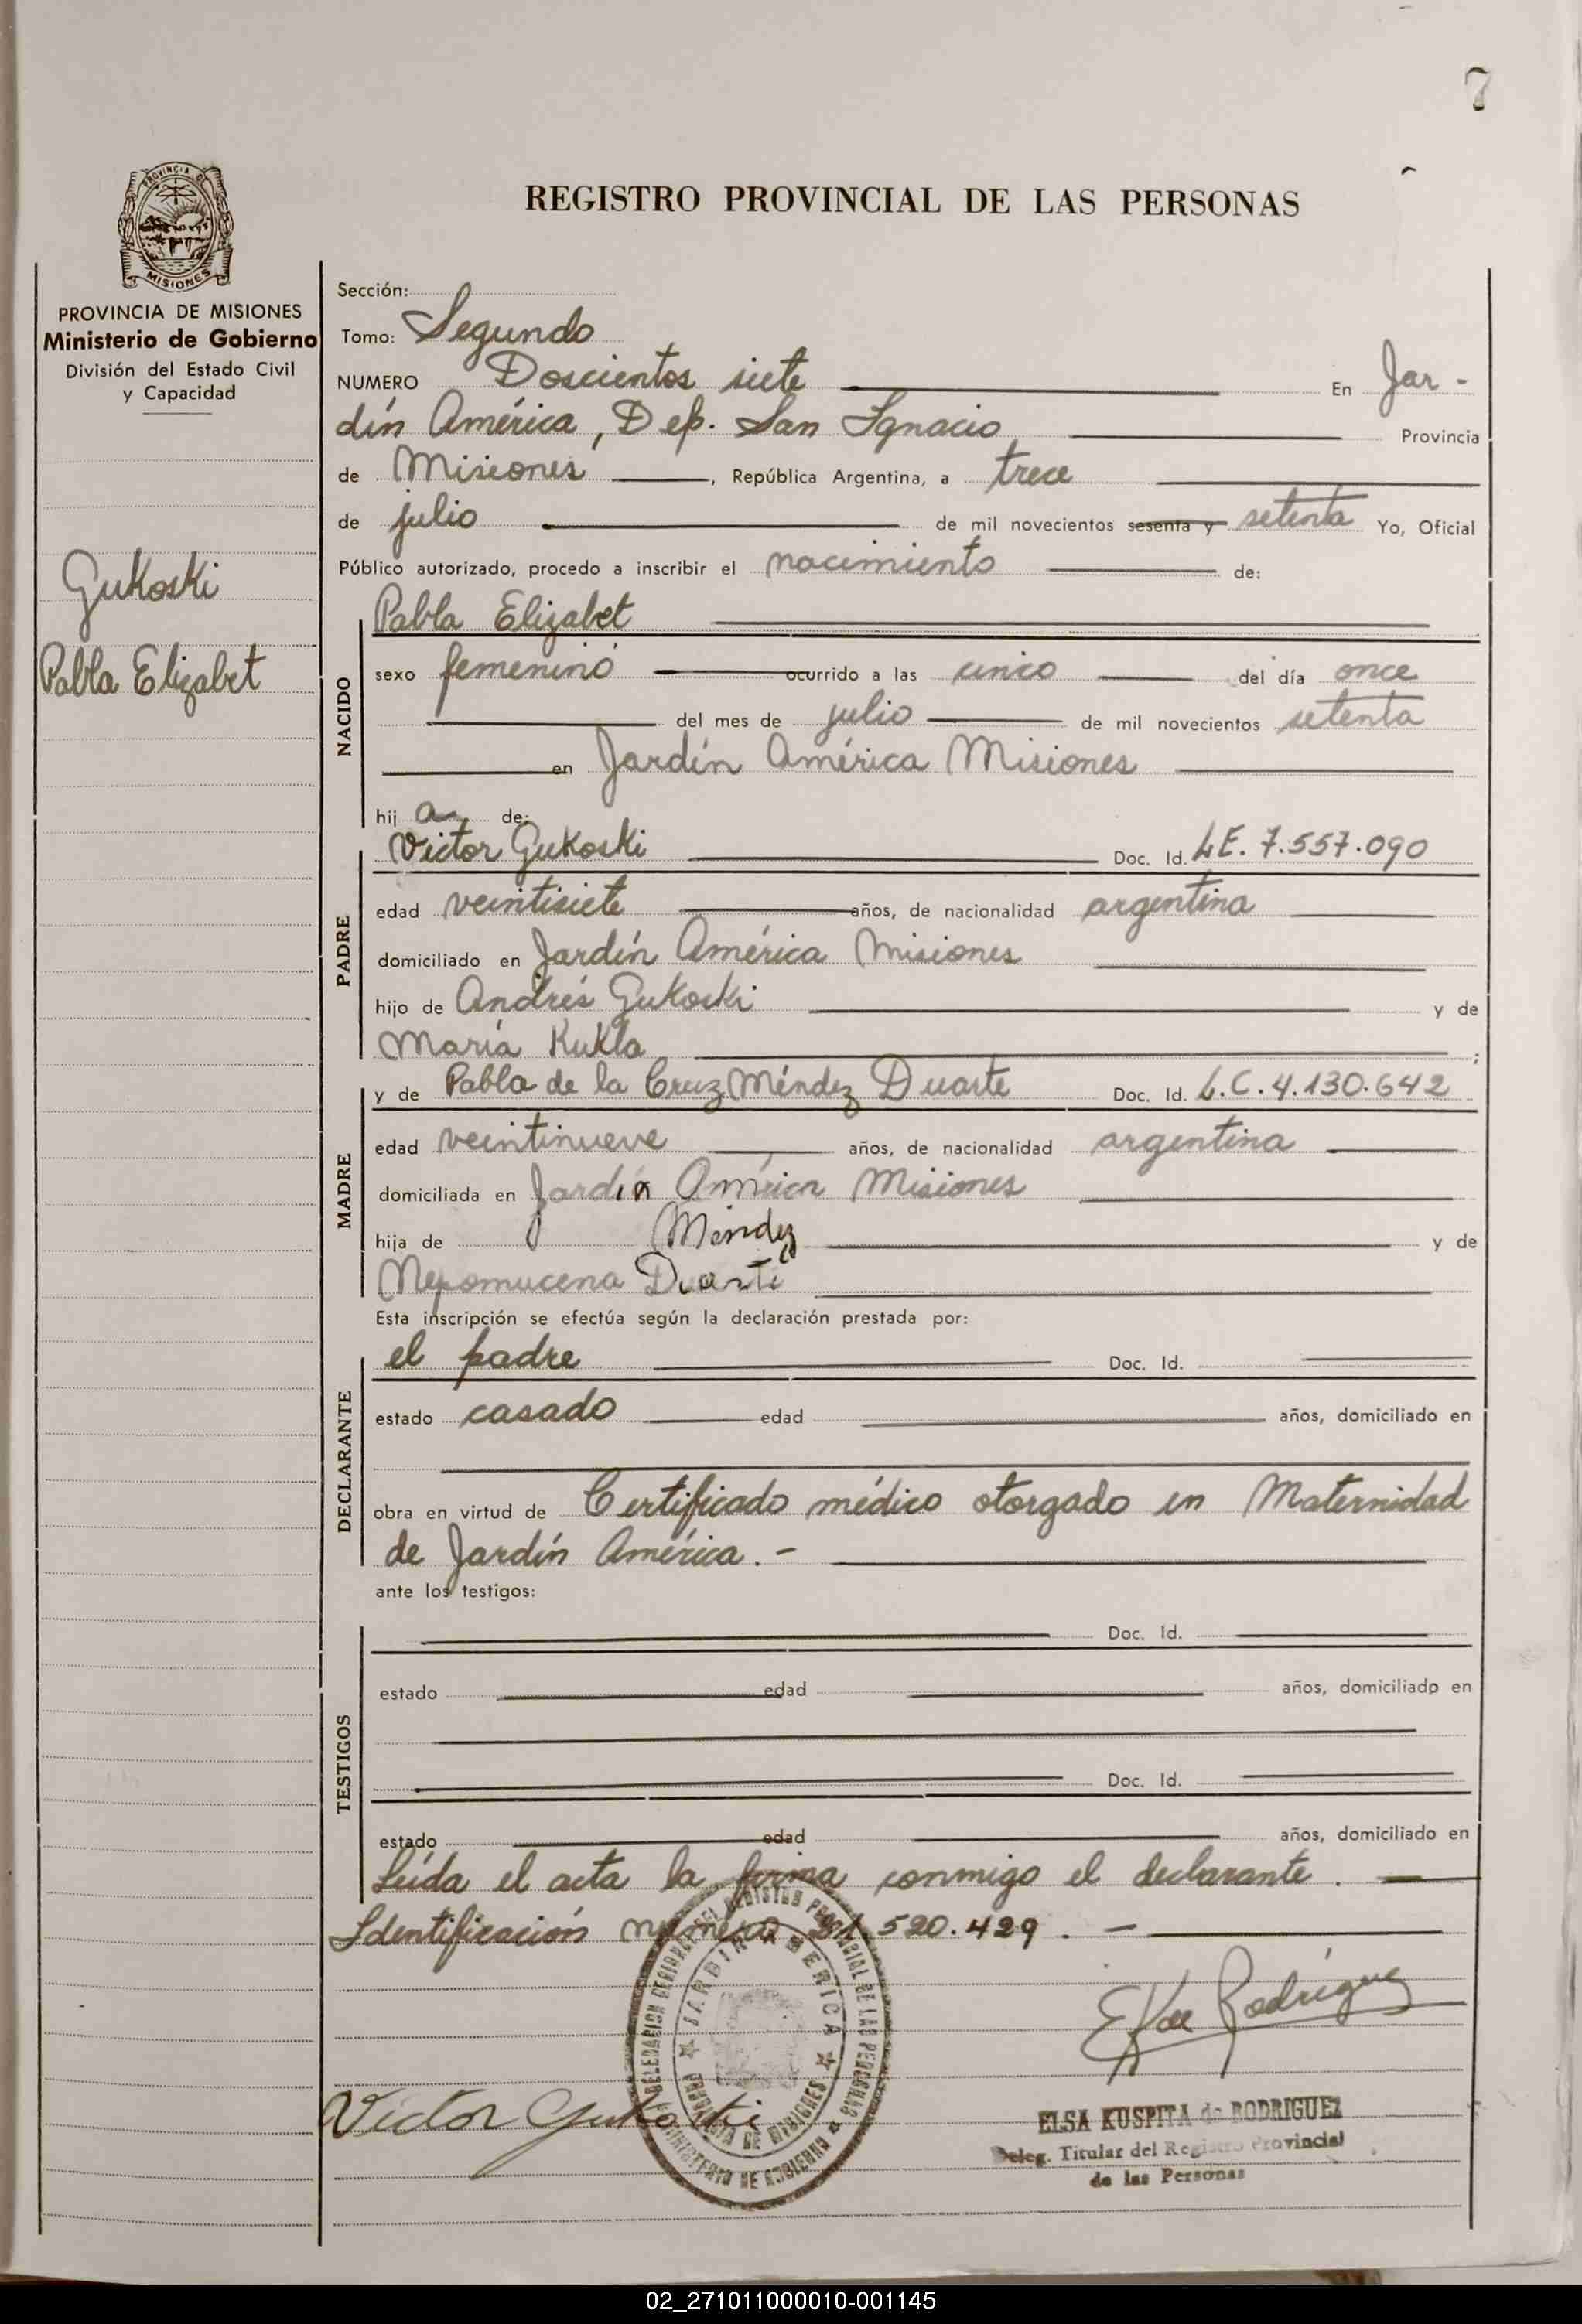 7
REGISTRO PROVINCIAL DE LAS PERSONAS
PROVINCIA DE MISIONES
Ministerio de Gobierno
División del Estado Civil
y Capacidad
Gukoski
Pabla Elizabet
Sección:
Tomo: Segundo
NUMERO Doscientos siete En Jar-
dín América, Dep. San Ignacio Provincia
de Misiones, República Argentina, a trece
de julio de mil novecientos sesenta y setenta Yo, Oficial
Público autorizado, procedo a inscribir el nacimiento de:
NACIDO
Pabla Elizabet
sexo femenino ocurrido a las cinco del día once
del mes de julio de mil novecientos setenta
en Jardín América Misiones
hij a de:
PADRE
Victor Gukoski Doc. Id. L.E. 7.557.090
edad veintisiete años, de nacionalidad argentina
domiciliado en Jardín América Misiones
hijo de Andrés Gukoski y de
María Kukla ;
MADRE
y de Pabla de la Cruz Méndez Duarte Doc. Id. L.C. 4.130.642
edad veintinueve años, de nacionalidad argentina
domiciliada en Jardín América Misiones
hija de Méndez y de
Nepomucena Duarte
Esta inscripción se efectúa según la declaración prestada por:
DECLARANTE
el padre Doc. Id.
estado casado edad años, domiciliado en
obra en virtud de Certificado médico otorgado en Maternidad
de Jardín América.-
ante los testigos:
TESTIGOS
Doc. Id.
estado edad años, domiciliado en
Doc. Id.
estado edad años, domiciliado en
Leída el acta la firma conmigo el declarante.
Identificación número 520.429.-
DELEGACION DEL REGISTRO PROVINCIAL DE LAS PERSONAS
JARDIN AMERICA
PROVINCIA DE MISIONES
MINISTERIO DE GOBIERNO
E K de Rodríguez
Victor Gukoski
ELSA KUSPITA de RODRIGUEZ
Deleg. Titular del Registro Provincial
de las Personas
02_271011000010-001145